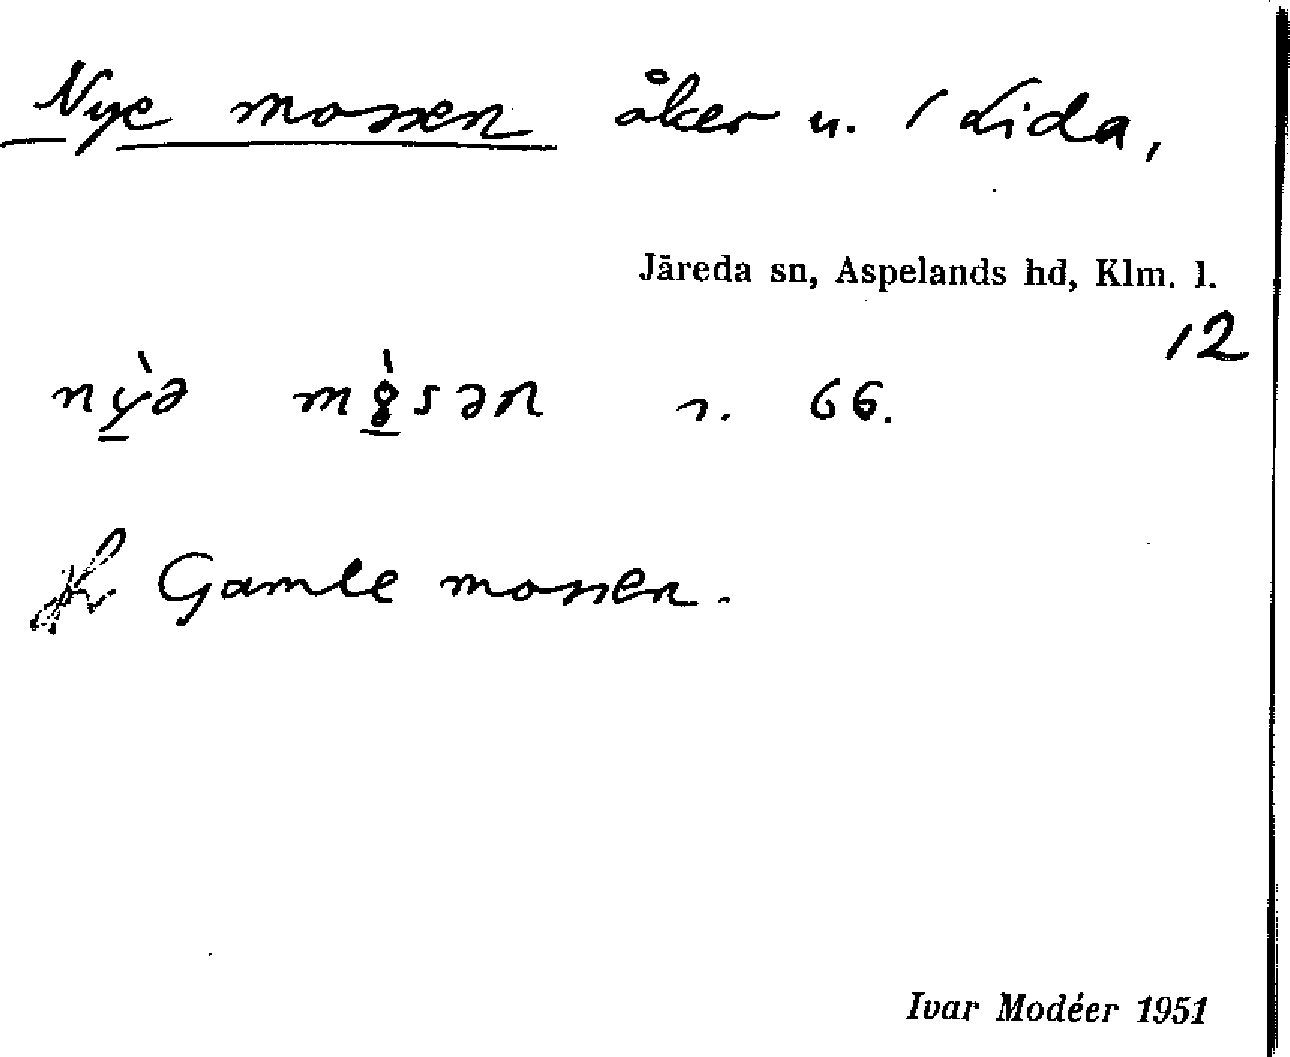 Nye mossen åker u. 1 Lida,
Järeda sn, Aspelands hd, Klm. l.
12
66.
Gamle mossen.
Ivar Modéer 1951